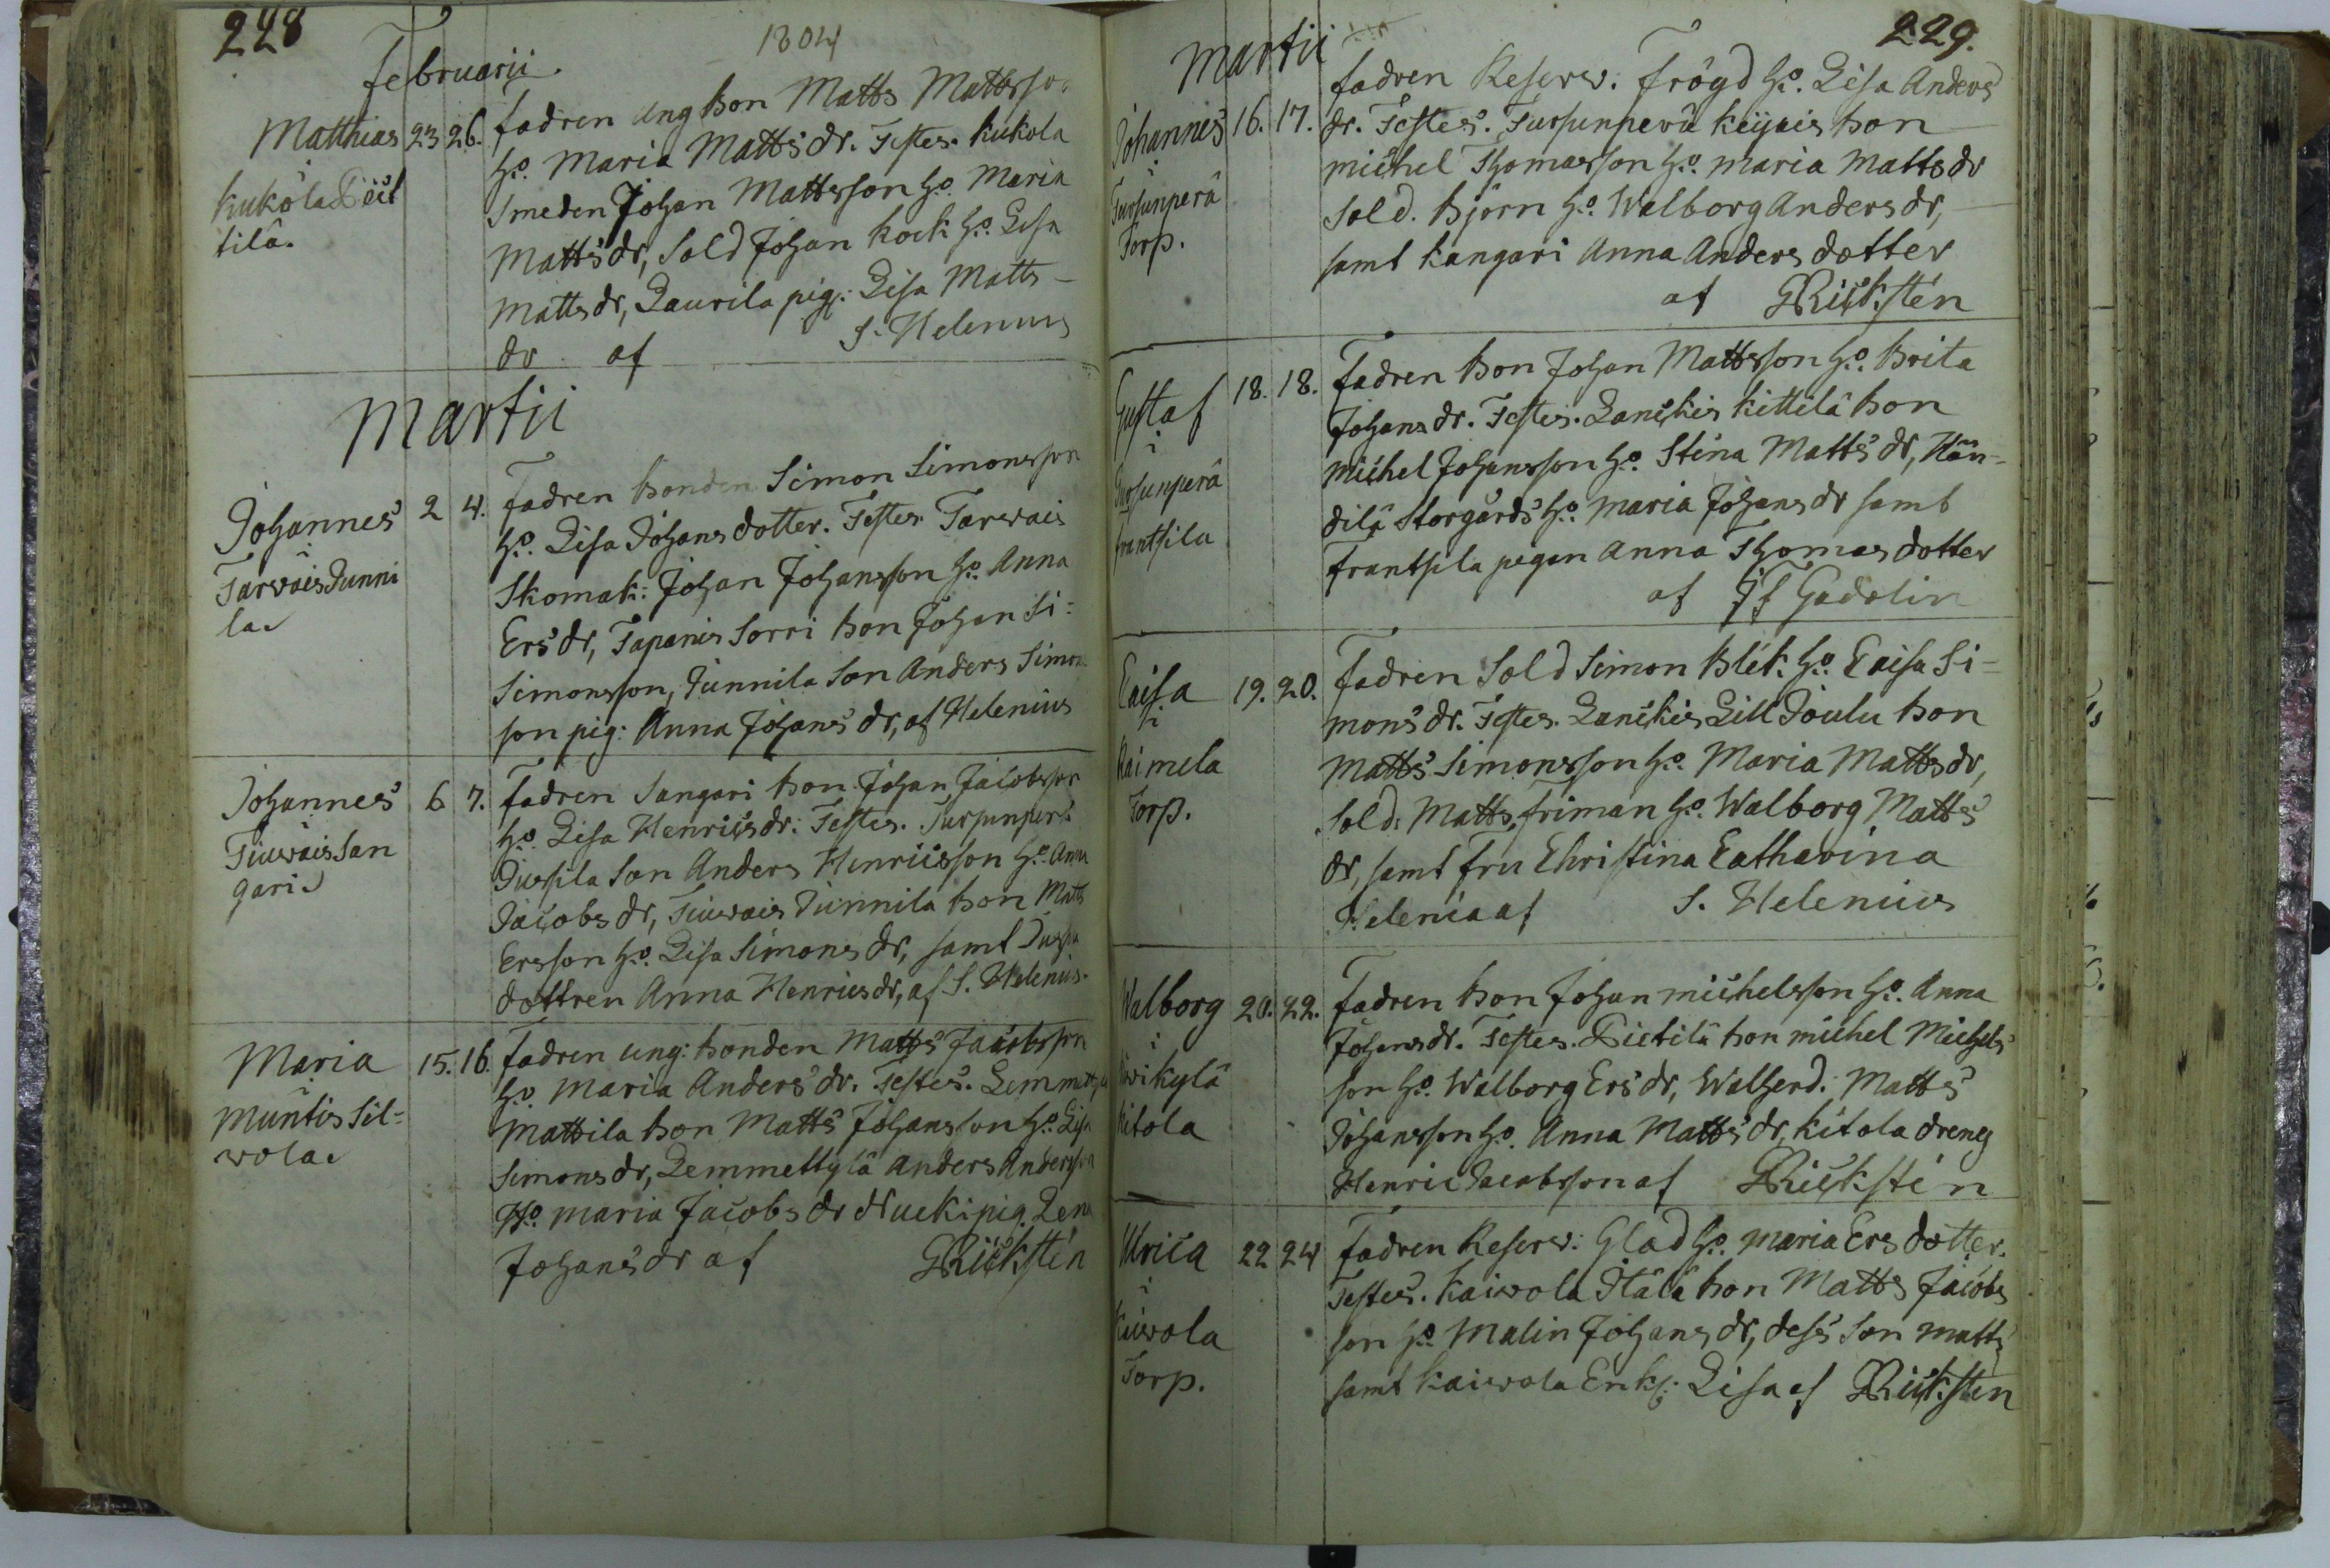 228
1804
Februarii.
Matthias 23 26. fadren ung bon Matts Mattsso
i
Kukola Piet
tilä.
h:o Maria Matts dr. Testes. Kukola
Smeden Johan Mattsson h:o Maria
Matts dr, Sold Johan Kock h:o Lisa
Matts dr, Laurila pig: Lisa Matts
dr af S. Helenius
Martii
Johannes 2 4. Fadren bonden Simon Simonsson
i
Tarvais Junni
la
h:o Lisa Johans dotter. Testes Tarvais
Skomak: Johan Johansson h:o Anna
Ers dr, Tapanis Sorri bon Johan Si=
Simonsson, Junnila Son Anders Simon
son pig: Anna Johans dr, af Helenius
Johannes 6 7. Fadren Sangari bon Johan Jacobsson
Tiuvais San
gari
h:o Lisa Henrics dr: Testes. Tursunperä
Jussila Son Anders Henricsson h:o Anna
Jacobs dr, Tiuvais Junnila bon Matts
Ersson h:o Lisa Simons dr, samt
dottren Anna Henrics dr, af S. Helenius.
Maria 15. 16. Fadren ung: bonden Matts Jacobsson
i
Muntis Sil=
vola
h:o Maria Anders dr. Testes.
Mattila bon Matts Johansson h:o Lisa
Simons dr, Lemmettylä Anders Andersson
H:o Maria Jacobs dr Nueki pig. Lena
Johans dr af GRickstén
229.
Martii
Johannes 16. 17. fadren Reserv: Frögd h:o Lisa Anders
i
Tursunperä
Torp.
dr. Testes. Tursunperä Keijais bon
Michel Thomasson h:o Maria Matts dr
Sold. Björn h:o Walborg Anders dr,
samt Kangari Anna Anders dotter
af GRickstén
Gustaf 18. 18. Fadren bon Johan Mattsson h:o Brita
i
Tursunperä
Frantsila
Johans dr. Testes. Lanskis Kittilä bon
Michel Johansson h:o Stina Matts dr, Hän-
dilä Storgårds h:o Maria Johans dr samt
Frantsila pigan Anna Thomas dotter
af JF Gadolin
Caisa 19. 20. Fadren Sold Simon Blek. h:o Caisa Si=
i
Raimela
Torp.
mons dr. Testes. Lanskis Lill Joulu bon
Matts Simonsson h:o Maria Matts dr,
Sold: Matts Friman h:o Walborg Matts
dr, samt Fru Christina Catharina
Helenia af S. Helenius
Walborg 20. 22. Fadren bon Johan Michelsson h:o Anna
i
Kitola
Johans dr. Testes. Pietilä bon Michel Michels
son h:o Walborg Ers dr, Matts
Johansson h:o Anna Matts dr, Kitola dreng
Henric Jacobsson af GRickstén
Ulrica 22 24 Fadren Reserv: Glad h:o Maria Ers dotter.
i
Kaivola
Torp.
Testes. Kaivola Itälä bon Matts Jacobs
son h:o Malin Johans dr, dess Son Matts
samt Kaivola Enk: Lisa af GRickstén